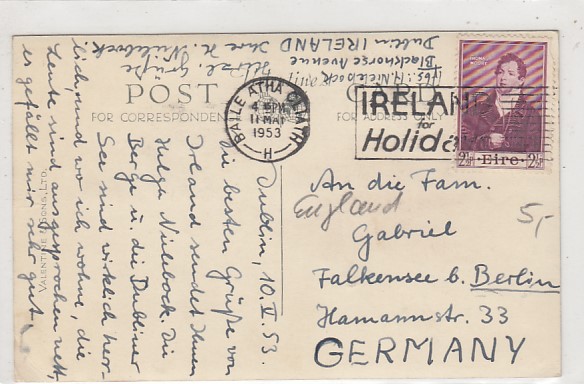 POST CARD
FOR CORRESPONDENCE
FOR ADDRESS ONLY
VALENTINE & SONS, LTD.
BAILE ATHA CLIATH
4 15PM
11 MAI
1953
H
IRELAND
for
Holidays
THOMAS MOORE
2½ Eire 2½
Dublin, 10.V.53.
Die besten Grüße von
Irland sendet Ihnen
Helga Nielebock. Die
Berge u. die Dubliner
See sind wirklich herr-
lich, und wo ich wohne, die
Leute sind ausgesprochen nett,
es gefällt mir sehr gut.
Herzl. Grüße
Ihre H. Nielebock
Abs.: H. Nielebock
Blackhorse Avenue
Dublin IRELAND
An die Fam.
England
Gabriel
Falkensee b. Berlin
Hamannstr. 33
GERMANY
5,-